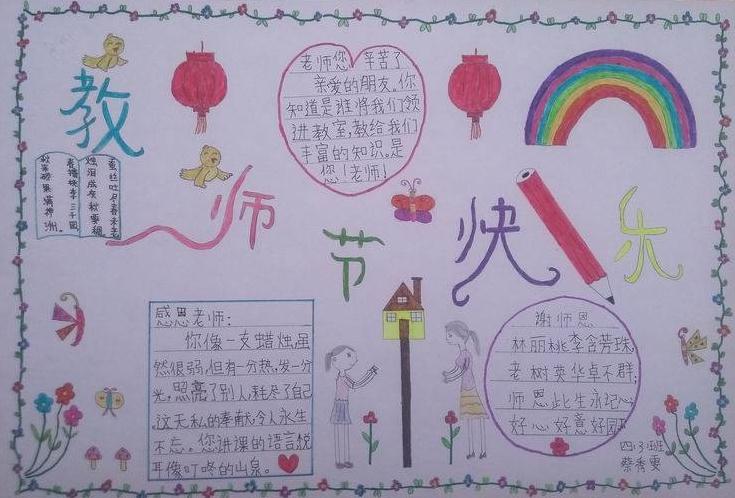 教
师
节
快
乐
老师您 辛苦了
亲爱的朋友,你
知道是谁将我们领
进教室,教给我们
丰富的知识。是
您!老师!
春蚕吐尽春未老
烛泪成灰秋更稠
春播桃李三千圃
秋来硕果满神洲。
感恩老师:
你像一支蜡烛,虽
然很弱,但有一分热,发一分
光,照亮了别人,耗尽了自己
,这无私的奉献,令人永生
不忘。您讲课的语言,悦
耳像叮咚的山泉。
谢师恩
林丽桃李含芳珠,
老树英华卓不群;
师恩此生永记心,
好心好意好园
四、3班
蔡秀雯